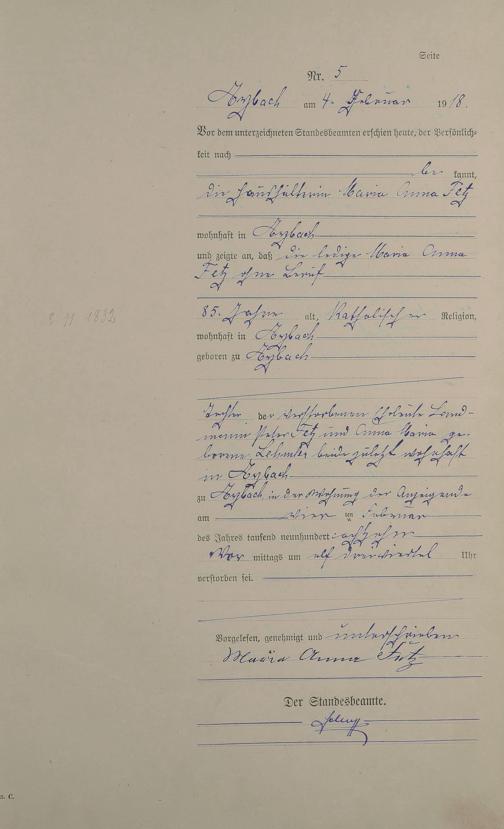 Seite
Nr. 5
Arzbach am 4. Februar 1918.
Vor dem unterzeichneten Standesbeamten erschien heute, der Persönlich-
keit nach
be kannt,
die Haushälterin Maria Anna Fetz
wohnhaft in Arzbach
und zeigte an, daß die ledige Maria Anna
Fetz ohne Beruf
85 Jahre alt, katholischer Religion,
wohnhaft in Arzbach
geboren zu Arzbach
Tochter der verstorbenen Eheleute Land-
mann Peter Fetz und Anna Maria ge-
borene beide zuletzt wohnhaft
in Arzbach
zu Arzbach in der Wohnung der Anzeigende
am vier ten Februar
des Jahres tausend neunhundert achtzehn
Vor mittags um elf dreiviertel Uhr
verstorben sei.
Vorgelesen, genehmigt und unterschrieben
Maria Anna Fetz
Der Standesbeamte.
11 1832
C.